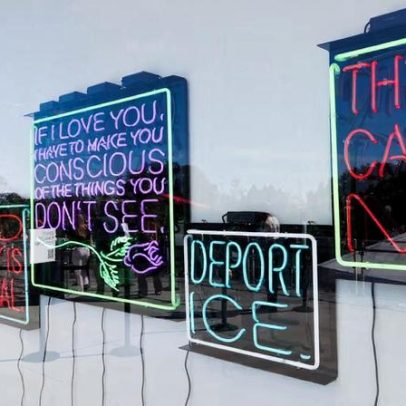 IF I LOVE YOU,
I HAVE TO MAKE YOU
CONSCIOUS
OF THE THINGS YOU
DON'T SEE.
DEPORT
ICE.
TH
CA
N